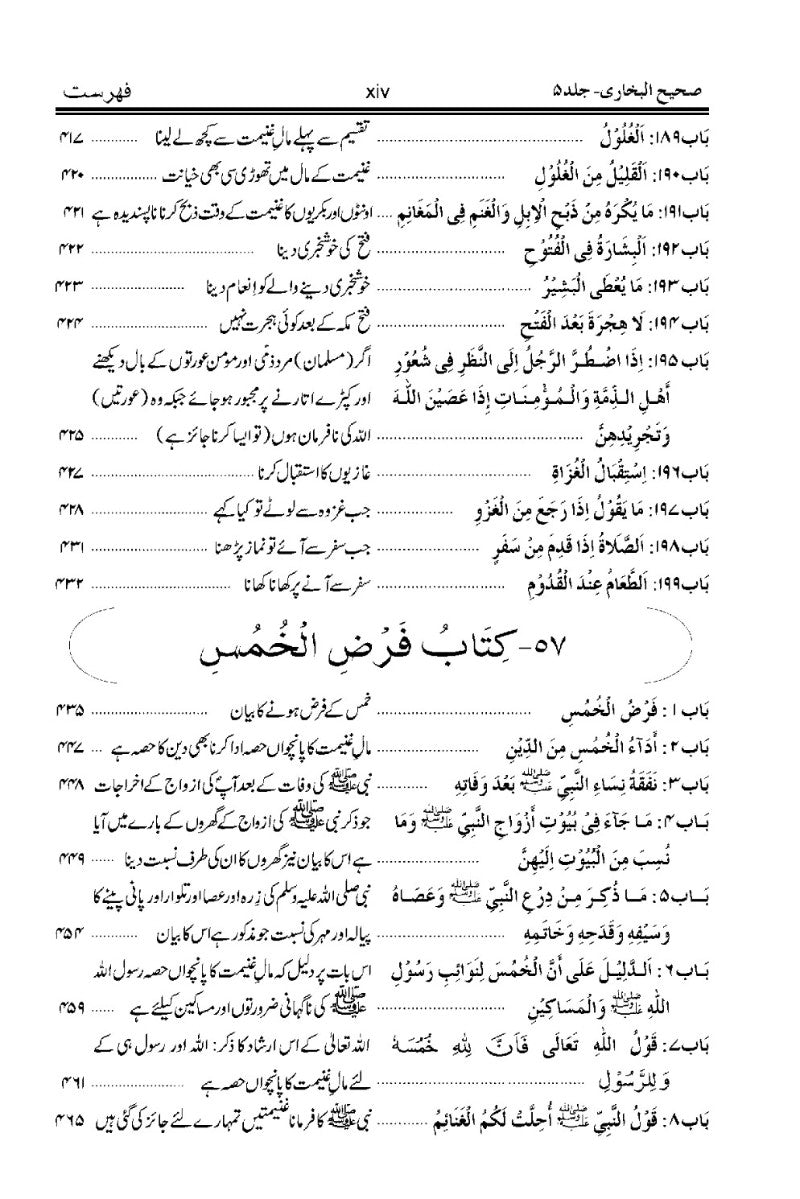 صحیح البخاری- جلد۵ xiv فهرست
بَاب۱۸۹: اَلْغُلُوْلُ ........ تقسیم سے پہلے مالِ غنیمت سے کچھ لے لینا ........ ۴۱۷
بَاب۱۹۰: اَلْقَلِيْلُ مِنَ الْغُلُوْلِ ........ غنیمت کے مال میں تھوڑی سی بھی خیانت ........ ۴۲۰
بَاب۱۹۱: مَا يُكْرَهُ مِنْ ذَبْحِ الْإِبِلِ وَالْغَنَمِ فِى الْمَغَانِمِ .... اونٹوں اور بکریوں کا غنیمت کے وقت ذبح کرنا ناپسندیدہ ہے ۴۲۱
بَاب۱۹۲: اَلْبِشَارَةُ فِى الْفُتُوْحِ ........ فتح کی خوشخبری دینا ........ ۴۲۲
بَاب۱۹۳: مَا يُعْطَى الْبَشِيْرُ ........ خوشخبری دینے والے کو اِنعام دینا ........ ۴۲۳
بَاب۱۹۴: لَا هِجْرَةَ بَعْدَ الْفَتْحِ ........ فتح مکہ کے بعد کوئی ہجرت نہیں ........ ۴۲۴
بَاب۱۹۵: اِذَا اضْطُرَّ الرَّجُلُ اِلَى النَّظَرِ فِى شُعُوْرِ اگر (مسلمان) مرد ذمّی اور مؤمن عورتوں کے بال دیکھنے
أَهْلِ الذِّمَّةِ وَالْمُؤْمِنَاتِ إِذَا عَصَيْنَ اللّٰهَ اور کپڑے اتارنے پر مجبور ہو جائے جبکہ وہ (عورتیں)
وَتَجْرِيْدِهِنَّ ........ اللہ کی نافرمان ہوں (تو ایسا کرنا جائز ہے) ........ ۴۲۵
بَاب۱۹۶: اِسْتِقْبَالُ الْغُزَاةِ ........ غازیوں کا استقبال کرنا ........ ۴۲۷
بَاب۱۹۷: مَا يَقُوْلُ اِذَا رَجَعَ مِنَ الْغَزْوِ ........ جب غزوہ سے لوٹے تو کیا کہے ........ ۴۲۸
بَاب۱۹۸: اَلصَّلَاةُ اِذَا قَدِمَ مِنْ سَفَرٍ ........ جب سفر سے آئے تو نماز پڑھنا ........ ۴۳۱
بَاب۱۹۹: اَلطَّعَامُ عِنْدَ الْقُدُوْمِ ........ سفر سے آنے پر کھانا کھانا ........ ۴۳۲
۵۷- كِتَابُ فَرْضِ الْخُمُسِ
بَاب ۱: فَرْضُ الْخُمُسِ ........ خمس کے فرض ہونے کا بیان ........ ۴۳۵
بَاب۲: أَدَآءُ الْخُمُسِ مِنَ الدِّيْنِ ........ مالِ غنیمت کا پانچواں حصہ ادا کرنا بھی دین کا حصہ ہے ... ۴۴۷
بَاب۳: نَفَقَةُ نِسَاءِ النَّبِيِّ ﷺ بَعْدَ وَفَاتِهِ ........ نبی ﷺ کی وفات کے بعد آپؐ کی ازواج کے اخراجات ۴۴۸
بَاب۴: مَا جَآءَ فِيْ بُيُوْتِ أَزْوَاجِ النَّبِيِّ ﷺ وَمَا جو ذکر نبی ﷺ کی ازواج کے گھروں کے بارے میں آیا
نُسِبَ مِنَ الْبُيُوْتِ إِلَيْهِنَّ ........ ہے اس کا بیان نیز گھروں کا ان کی طرف نسبت دینا ...... ۴۴۹
بَاب۵: مَا ذُكِرَ مِنْ دِرْعِ النَّبِيِّ ﷺ وَعَصَاهُ نبی صلی اللہ علیہ وسلم کی زِرہ اور عصا اور تلوار اور پانی پینے کا
وَسَيْفِهِ وَقَدَحِهِ وَخَاتَمِهِ ........ پیالہ اور مہر کی نسبت جو مذکور ہے اس کا بیان ........ ۴۵۴
بَاب۶: اَلدَّلِيْلُ عَلَى أَنَّ الْخُمُسَ لِنَوَائِبِ رَسُوْلِ اس بات پر دلیل کہ مالِ غنیمت کا پانچواں حصہ رسول اللہ
اللّٰهِ ﷺ وَالْمَسَاكِيْنِ ........ ﷺ کی ناگہانی ضرورتوں اور مساکین کیلئے ہے ...... ۴۵۹
بَاب۷: قَوْلُ اللّٰهِ تَعَالَى فَاَنَّ لِلّٰهِ خُمُسَهٗ اللہ تعالیٰ کے اس ارشاد کا ذکر: اللہ اور رسول ہی کے
وَلِلرَّسُوْلِ ........ لئے مالِ غنیمت کا پانچواں حصہ ہے ........ ۴۶۱
بَاب۸: قَوْلُ النَّبِيِّ ﷺ أُحِلَّتْ لَكُمُ الْغَنَائِمُ ........ نبی ﷺ کا فرمانا غنیمتیں تمہارے لئے جائز کی گئی ہیں ۴۶۵